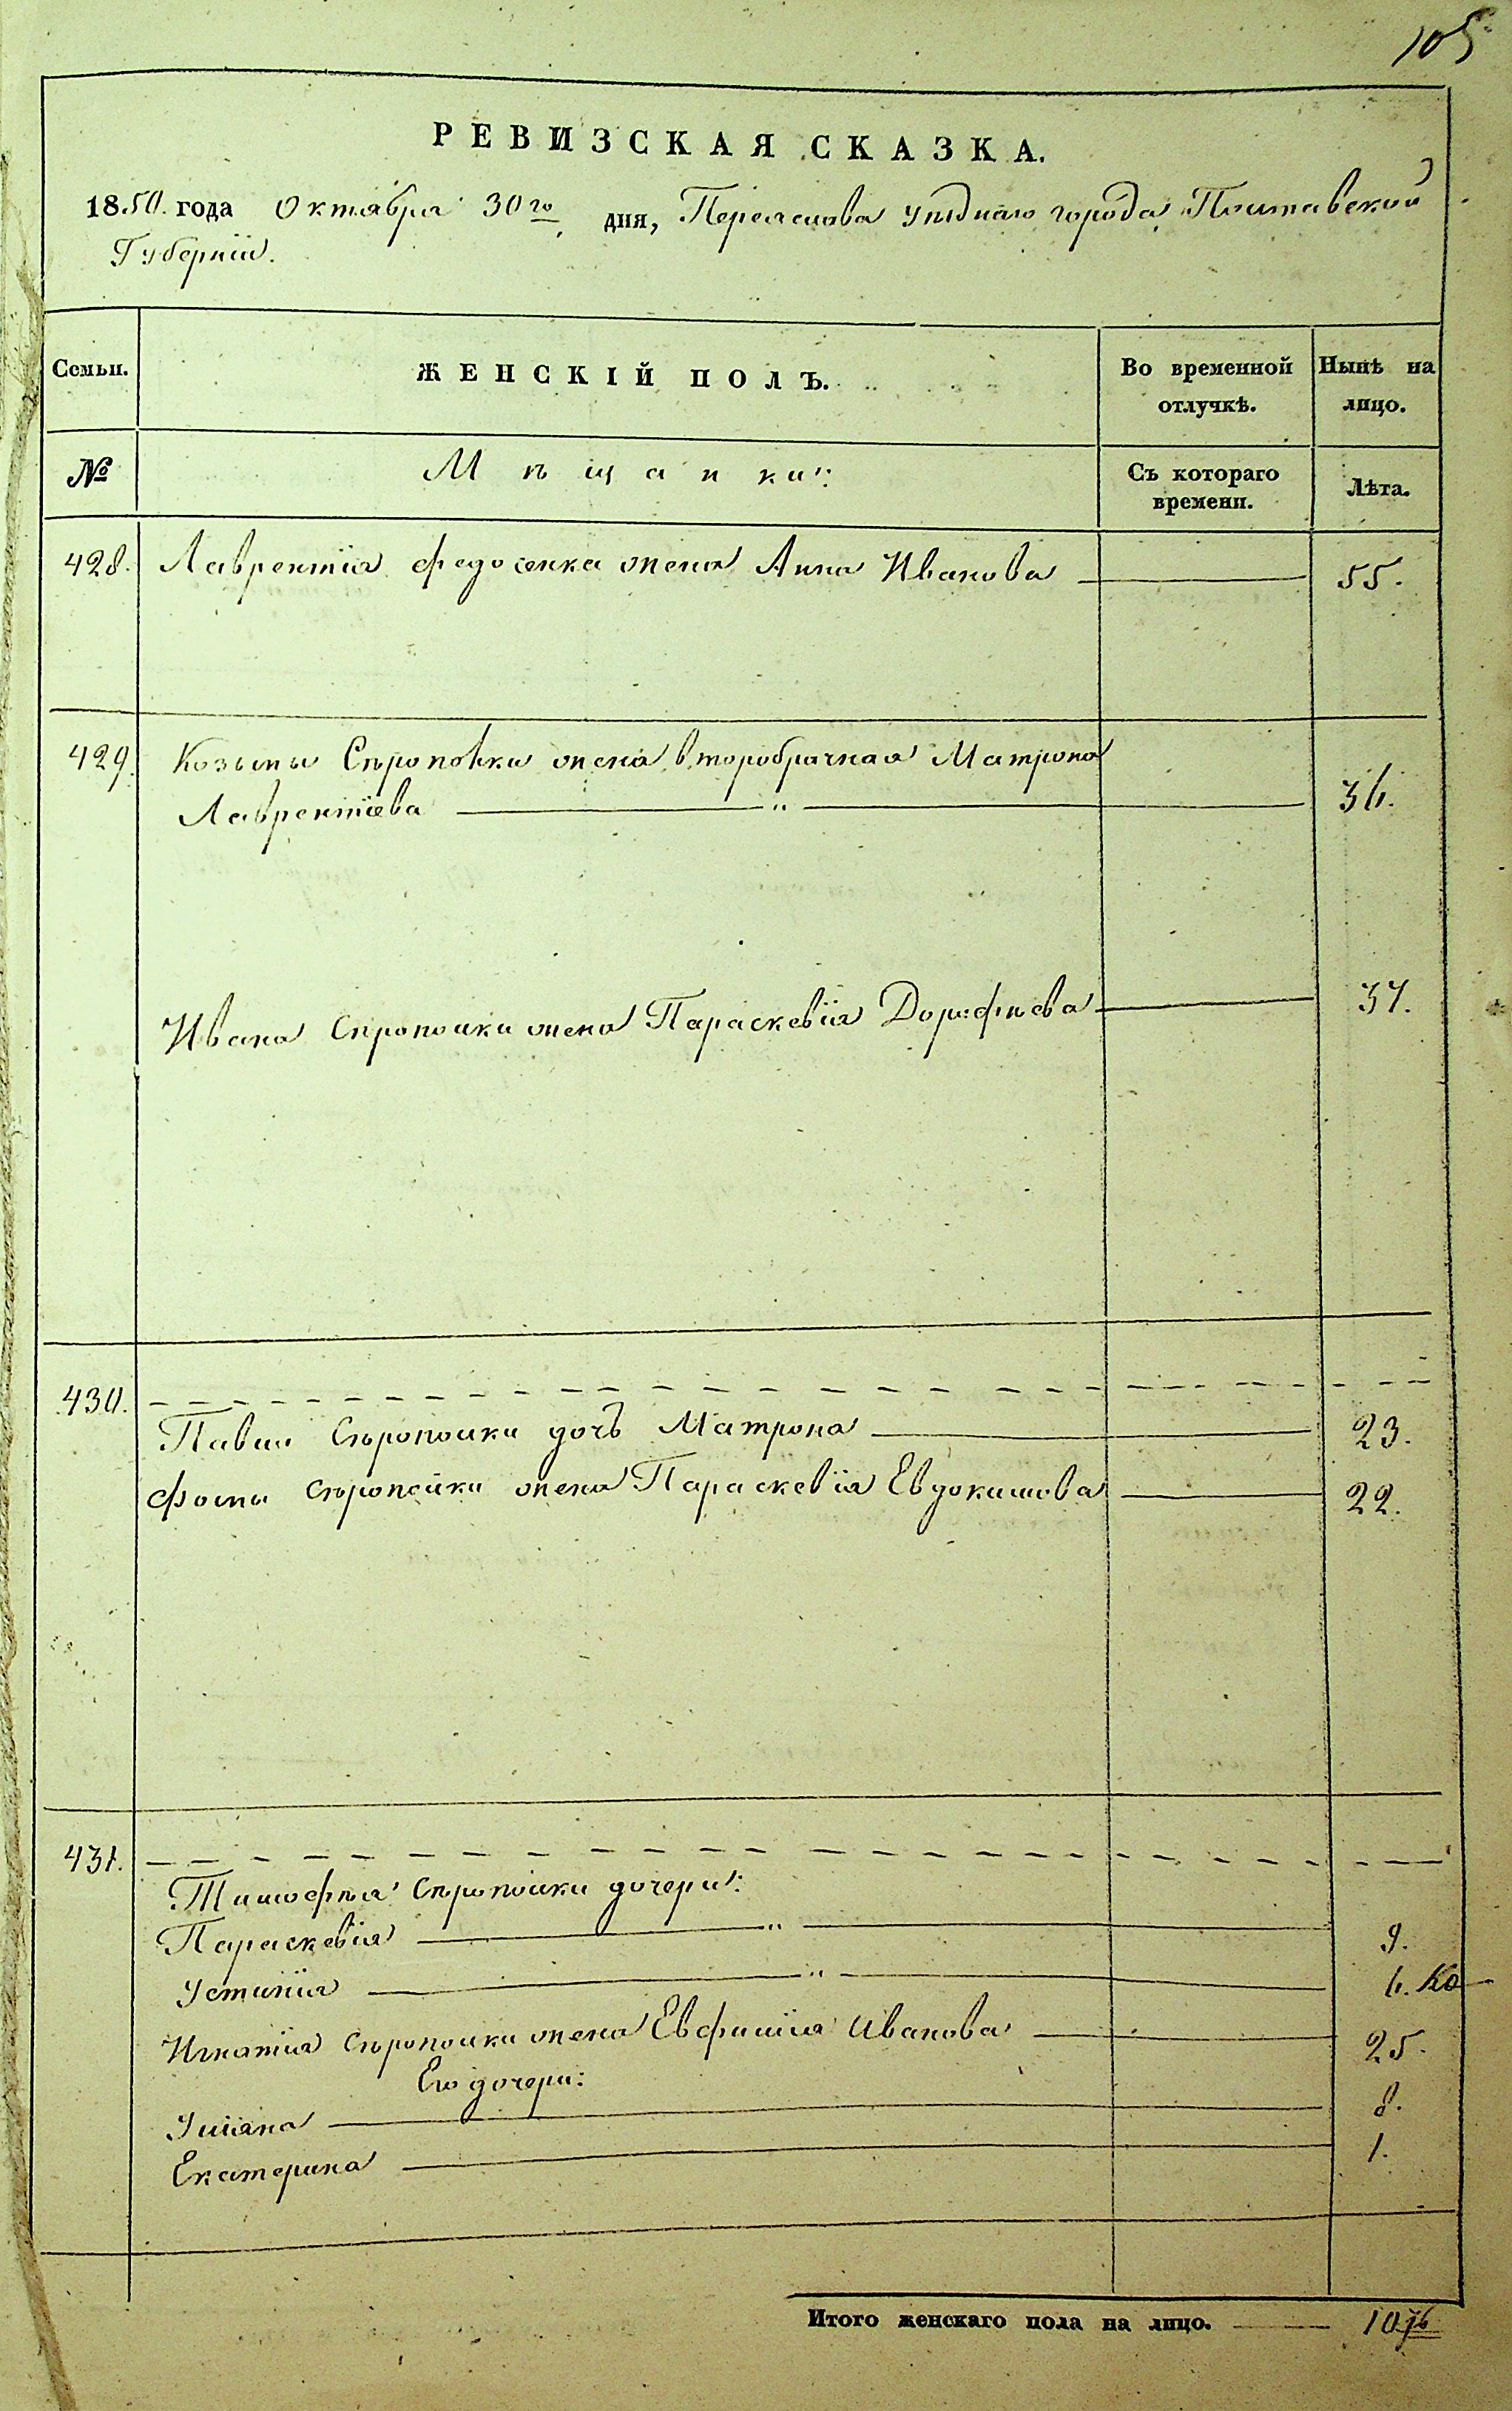 105
РЕВИЗСКАЯ СКАЗКА.
1850. года Октября 30го дня, Переяслова уѣзднаго города, Полтавской
Губерніи.
Семьи. ЖЕНСКІЙ ПОЛЪ. Во временной отлучкѣ. Нынѣ на лицо.
№ Мѣщанки: Съ котораго времени. Лѣта.
428. Лаврентія Федосенка жена Анна Иванова 55.
429. Козьмы Сыропоѣки жена второбрачная Матрона
Лаврентіева " 36.
Ивана Сыропоѣки жена Параскевія Дорофѣева 37.
430.
Павла Сыропоѣки дочь Матрона 23.
Фомы Сыропоѣки жена Параскевія Евдокимова 22.
431.
Тимофѣя Сыропоѣки дочери:
Параскевія " 9.
Устинія " 6.
Игнатія Сыропоѣки жена Евфимія Иванова 25.
Его дочери:
Уліяна 8.
Екатерина 1.
Итого женскаго пола на лицо. 10